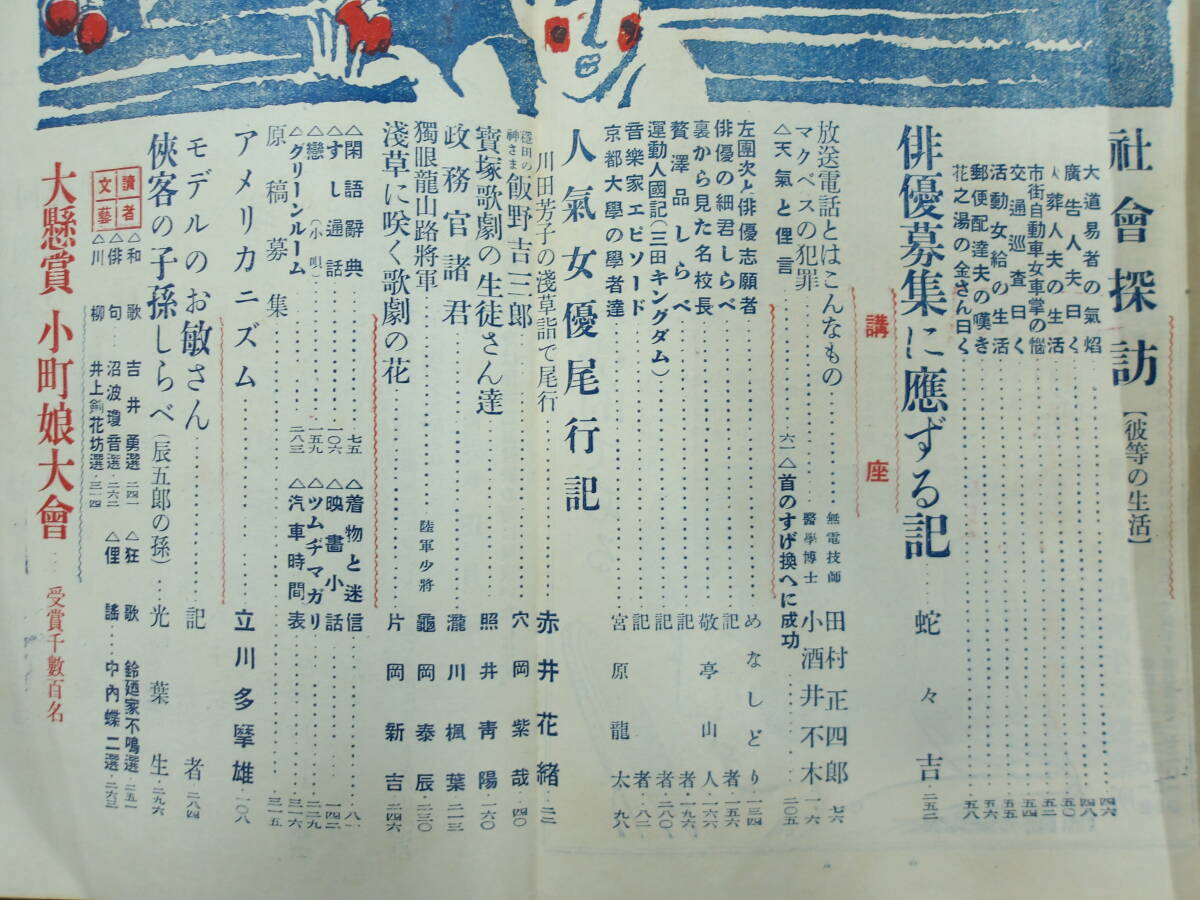 社會探訪【彼等の生活】
大道易者の氣焰……四六
廣告人夫曰く……四八
火葬人夫の生活……五〇
市街自動車女車掌の惱……五二
交通巡査曰く……五四
活動女給の生活……五五
郵便配達夫の嘆き……五六
花之湯の金さん曰く……五八
俳優募集に應ずる記……蛇々吉…二五二
講座
放送電話とはこんなもの……無電技師 田村正四郎…七六
マクベスの犯罪……醫學博士 小酒井不木…一六
△天氣と俚言……六一
△首のすげ換へに成功……二〇五
左團次と俳優志願者……めなしどり…一三四
俳優の細君しらべ……記者…一五六
裏から見た名校長……敬亭山人…一六六
贅澤品しらべ……記者…一九六
運動人國記(三田キングダム)……記者…二八〇
音樂家エピソード……記者…八二
京都大學の學者達……宮原龍太…九八
人氣女優尾行記
川田芳子の淺草詣で尾行……赤井花緒…二二
穩田の神さま 飯野吉三郎……穴岡紫哉…四〇
寶塚歌劇の生徒さん達……照井靑陽…一六〇
政務官諸君……瀧川楓葉…二一三
獨眼龍山路將軍……陸軍少將 龜岡泰辰…二三〇
淺草に咲く歌劇の花……片岡新吉…二四六
△閑語辭典……七五
△着物と迷信……八一
△すし通話……一〇六
△映畫小話……一四二
△戀(小唄)……一五九
△ツムヂマガリ……二二九
△グリーンルーム……二八三
△汽車時間表……三一六
原稿募集……三一五
アメリカニズム……立川多摩雄…一〇八
モデルのお敏さん……記者…二八四
俠客の子孫しらべ(辰五郎の孫)…光葉生…二九六
讀者文藝
△和歌 吉井勇選…二四一
△狂歌 鈴廼家不鳴選…二五一
△俳句…沼波瓊音選…二六二
△俚謠…中內蝶二選…二六三
△川柳 井上劍花坊選…三一四
大懸賞 小町娘大會……受賞千數百名